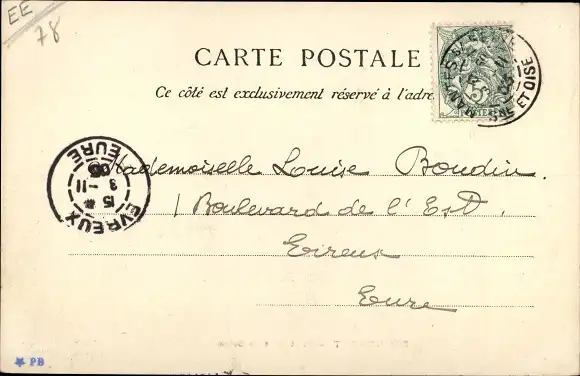 EE
78
CARTE POSTALE
Ce côté est exclusivement réservé à l'adre
5
SNE ET OISE
Mademoiselle Louise Boudin
1 Boulevard de l'Est
Evreux
Eure
EVREUX
15 *
3 - 11
05
EURE
PB